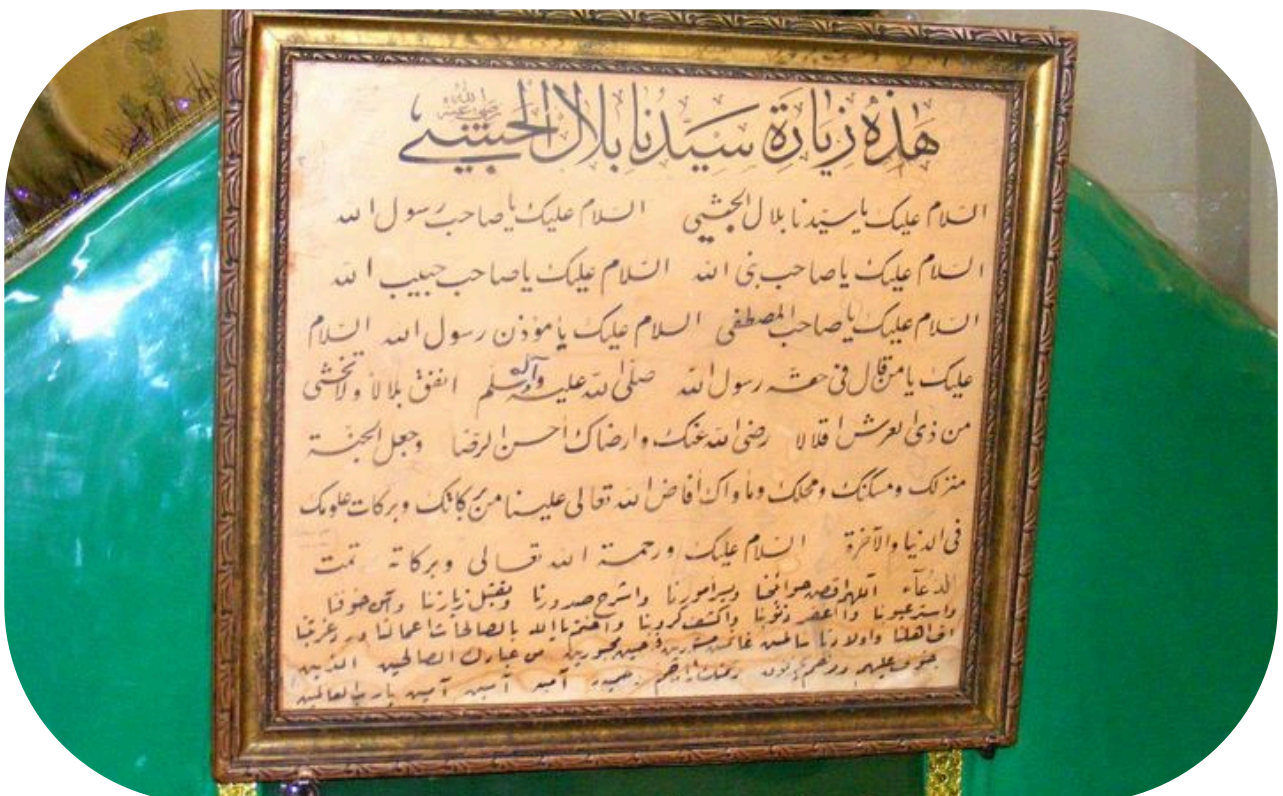 هذه زيارة سيدنا بلال الحبشي رضي الله عنه
السلام عليك يا سيدنا بلال الحبشي السلام عليك يا صاحب رسول الله
السلام عليك يا صاحب نبي الله السلام عليك يا صاحب حبيب الله
السلام عليك يا صاحب المصطفى السلام عليك يا مؤذن رسول الله السلام
عليك يا من قال في حقه رسول الله صلى الله عليه وآله وسلم انفق بلالا ولا تخشى
من ذي العرش اقلالا رضي الله عنك وارضاك احسن الرضا وجعل الجنة
منزلك ومسكنك ومحلك ومأواك افاض الله تعالى علينا من بركاتك وبركات علومك
في الدنيا والآخرة السلام عليك ورحمة الله تعالى وبركاته تمت
الدعآء اللهم اقض حوائجنا ويسر أمورنا واشرح صدورنا وتقبل زيارتنا وآمن خوفنا
واستر عيوبنا واغفر ذنوبنا واكشف كروبنا واختم يا الله بالصالحات اعمالنا ورد غربتنا
الى اهلنا واولادنا سالمين غانمين مستورين من عبادك الصالحين الذين
خوف عليهم ولاهم يحزنون آمين آمين آمين يا رب العالمين